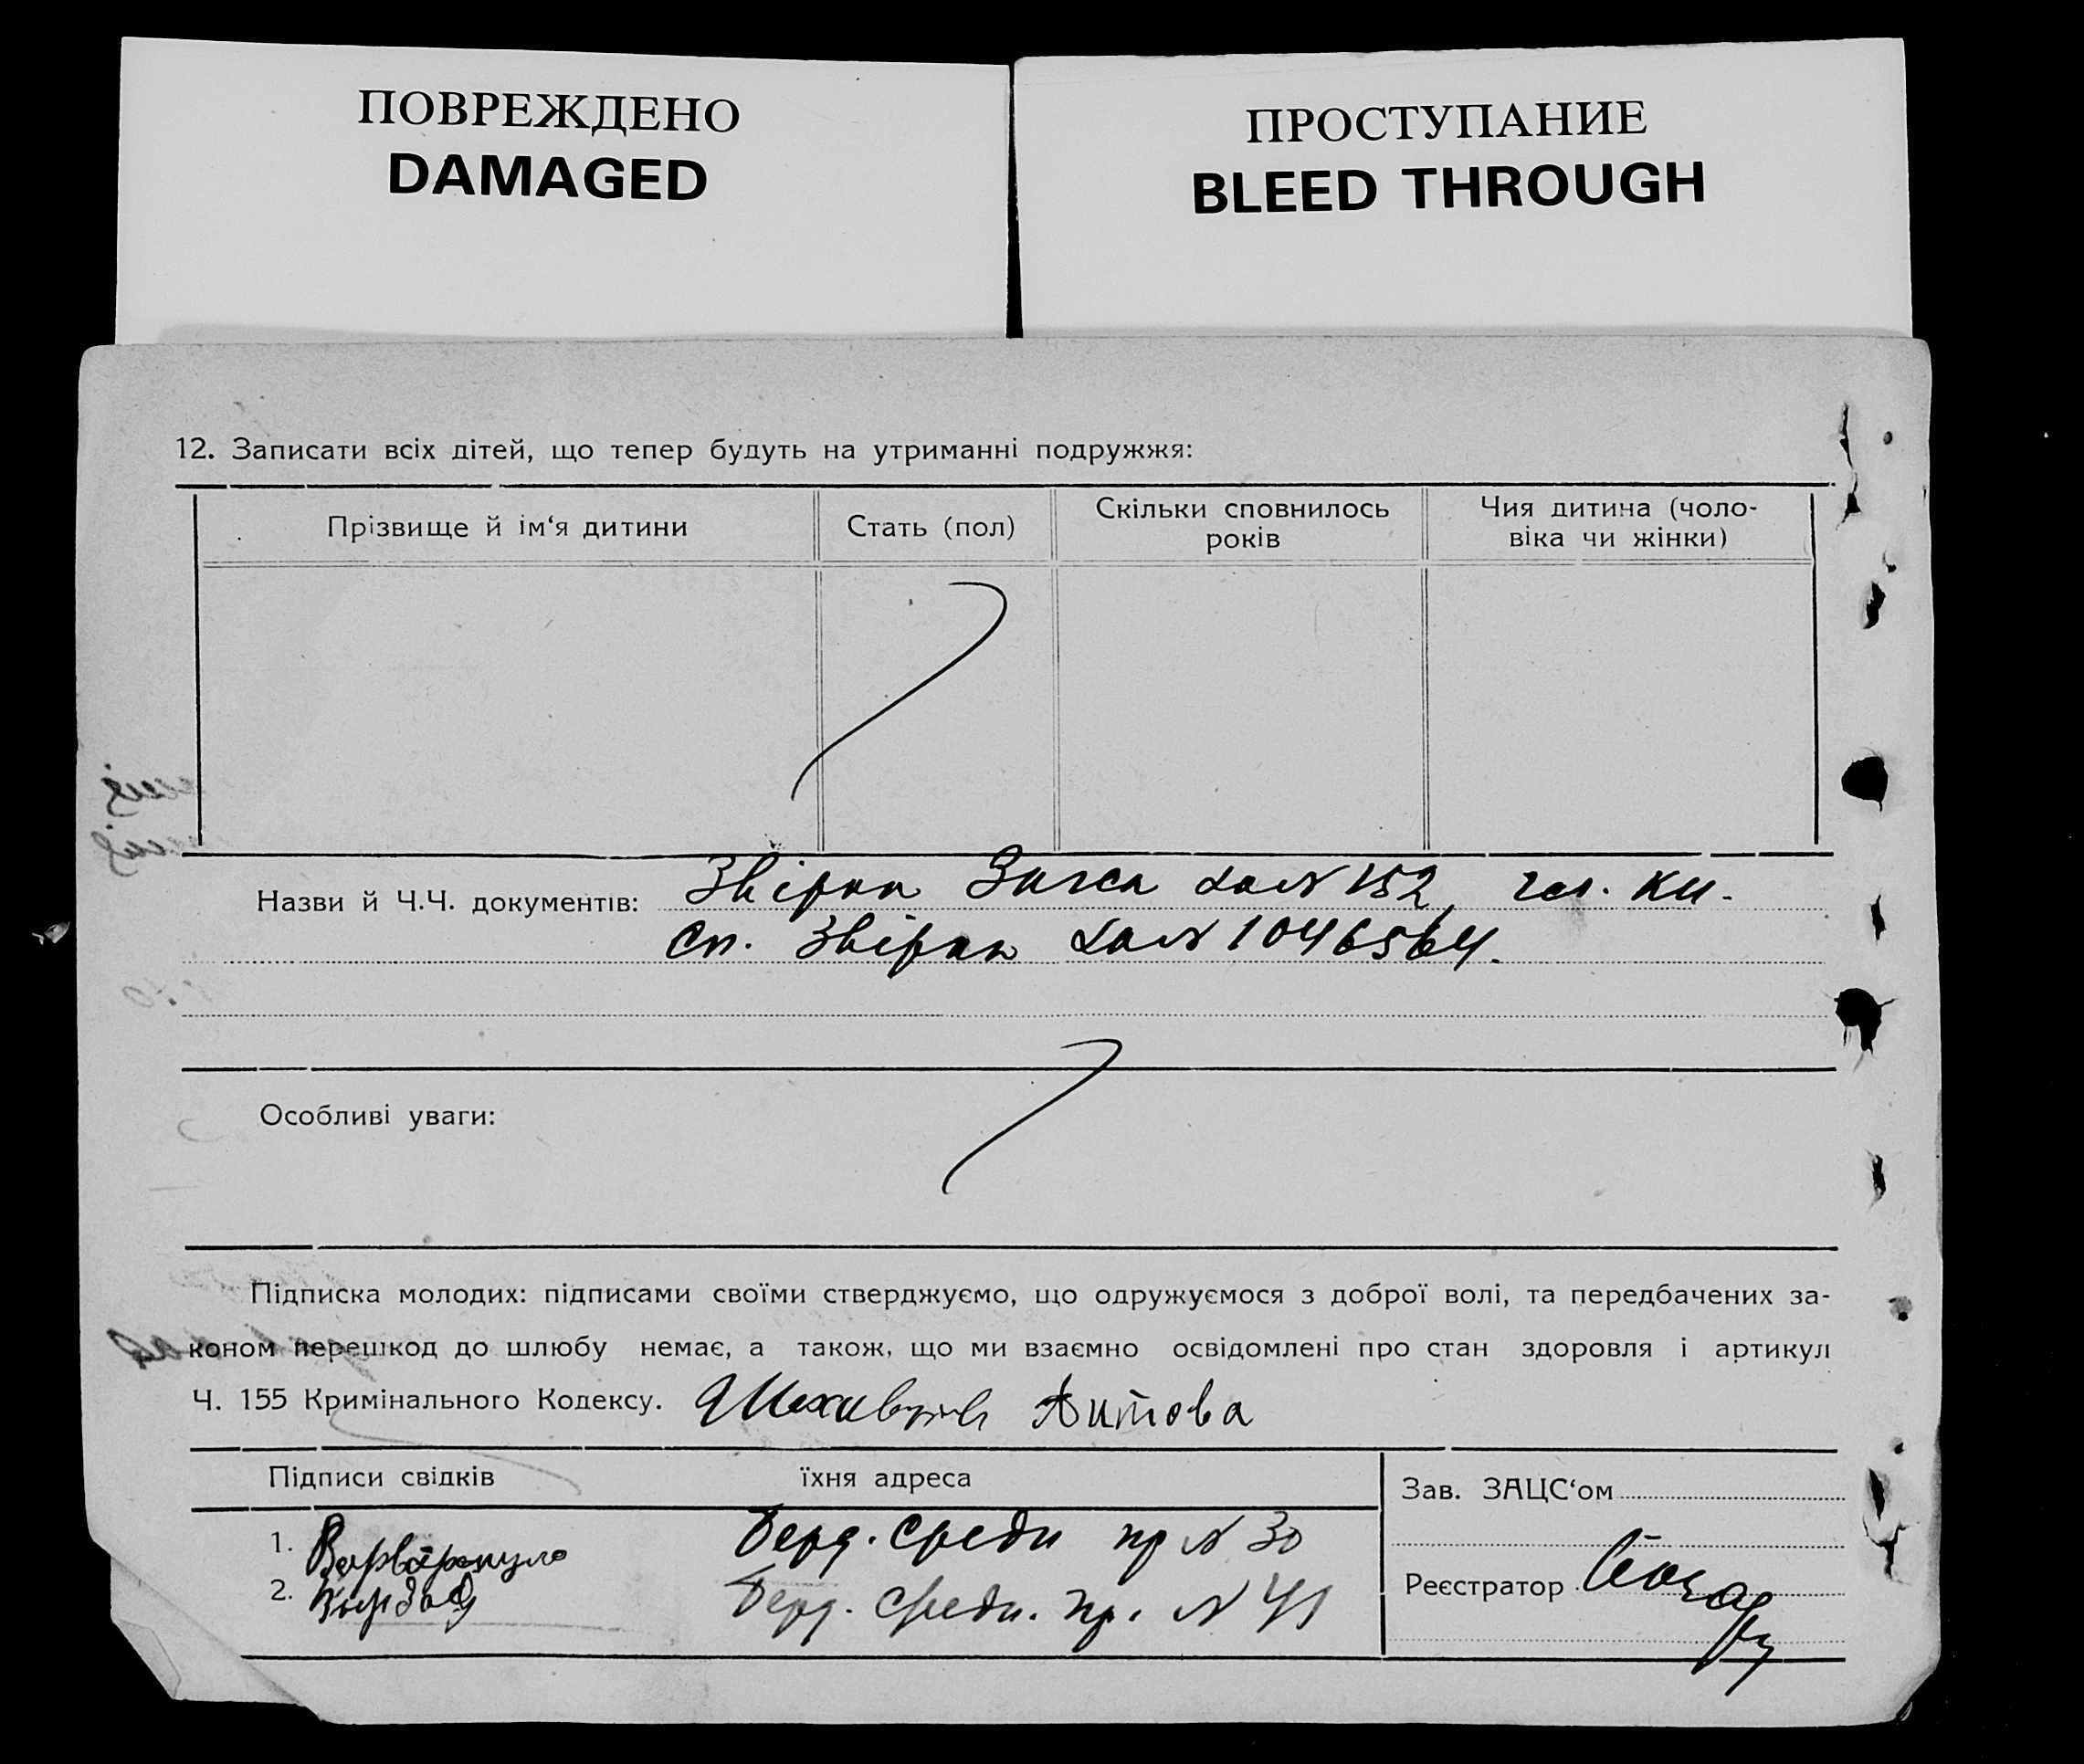 ПОВРЕЖДЕНО
DAMAGED
ПРОСТУПАНИЕ
BLEED THROUGH
12. Записати всіх дітей, що тепер будуть на утриманні подружжя:
Прізвище й ім‘я дитини
Стать (пол)
Скільки сповнилось
років
Чия дитина (чоло-
віка чи жінки)
Назви й Ч.Ч. документів: Звірка Загса № 152
Сп. Звірка № 1046564.
Особливі уваги:
Підписка молодих: підписами своїми стверджуємо, що одружуємося з доброї волі, та передбачених за-
коном перешкод до шлюбу немає, а також, що ми взаємно освідомлені про стан здоровля і артикул
Ч. 155 Кримінального Кодексу. Аитова
Підписи свідків
їхня адреса
Зав. ЗАЦС‘ом
1. Берд. Средн пр № 30
2. Берд. Средн. пр. № 41
Реєстратор